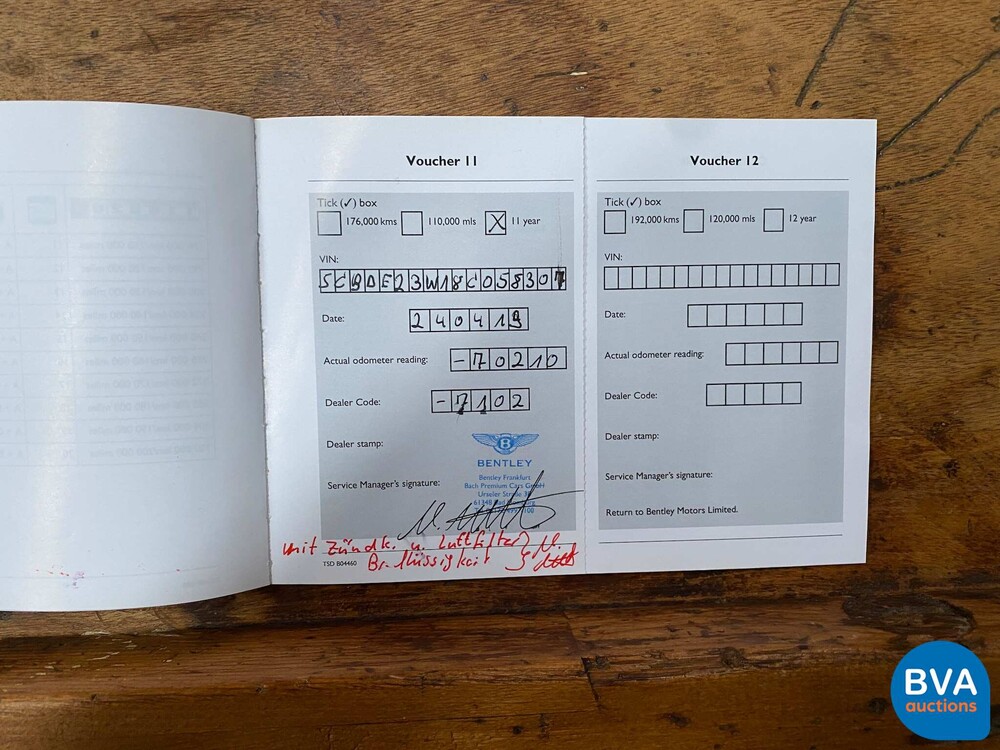 Voucher 11
Tick (✓) box
176,000 kms 110,000 mls X 11 year
VIN:
SCBDE23W18C058307
Date:
240419
Actual odometer reading:
-70210
Dealer Code:
-7102
Dealer stamp:
B
BENTLEY
Bentley Frankfurt
Bach Premium Cars GmbH
Urseler Straße
61348 Bad
Service Manager's signature:
mit Zündk. u. Luftfilter
Br. flüssigkeit
TSD B04460
Voucher 12
Tick (✓) box
192,000 kms 120,000 mls 12 year
VIN:
Date:
Actual odometer reading:
Dealer Code:
Dealer stamp:
Service Manager's signature:
Return to Bentley Motors Limited.
BVA
auctions